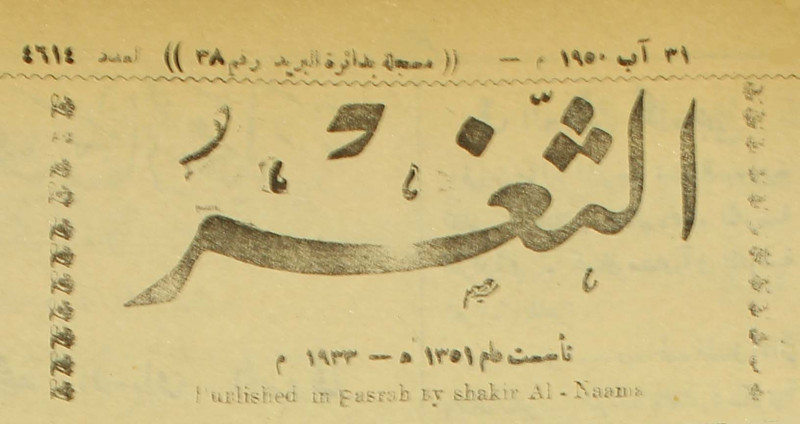 ٣١ آب ١٩٥٠ م — (( مسجلة بدائرة البريد رقم ٣٨ )) العدد ٤٦١٤
الثغر
تأسست عام ١٣٥١ ه — ١٩٣٣ م
Published in Basrah By shakir Al - Naama